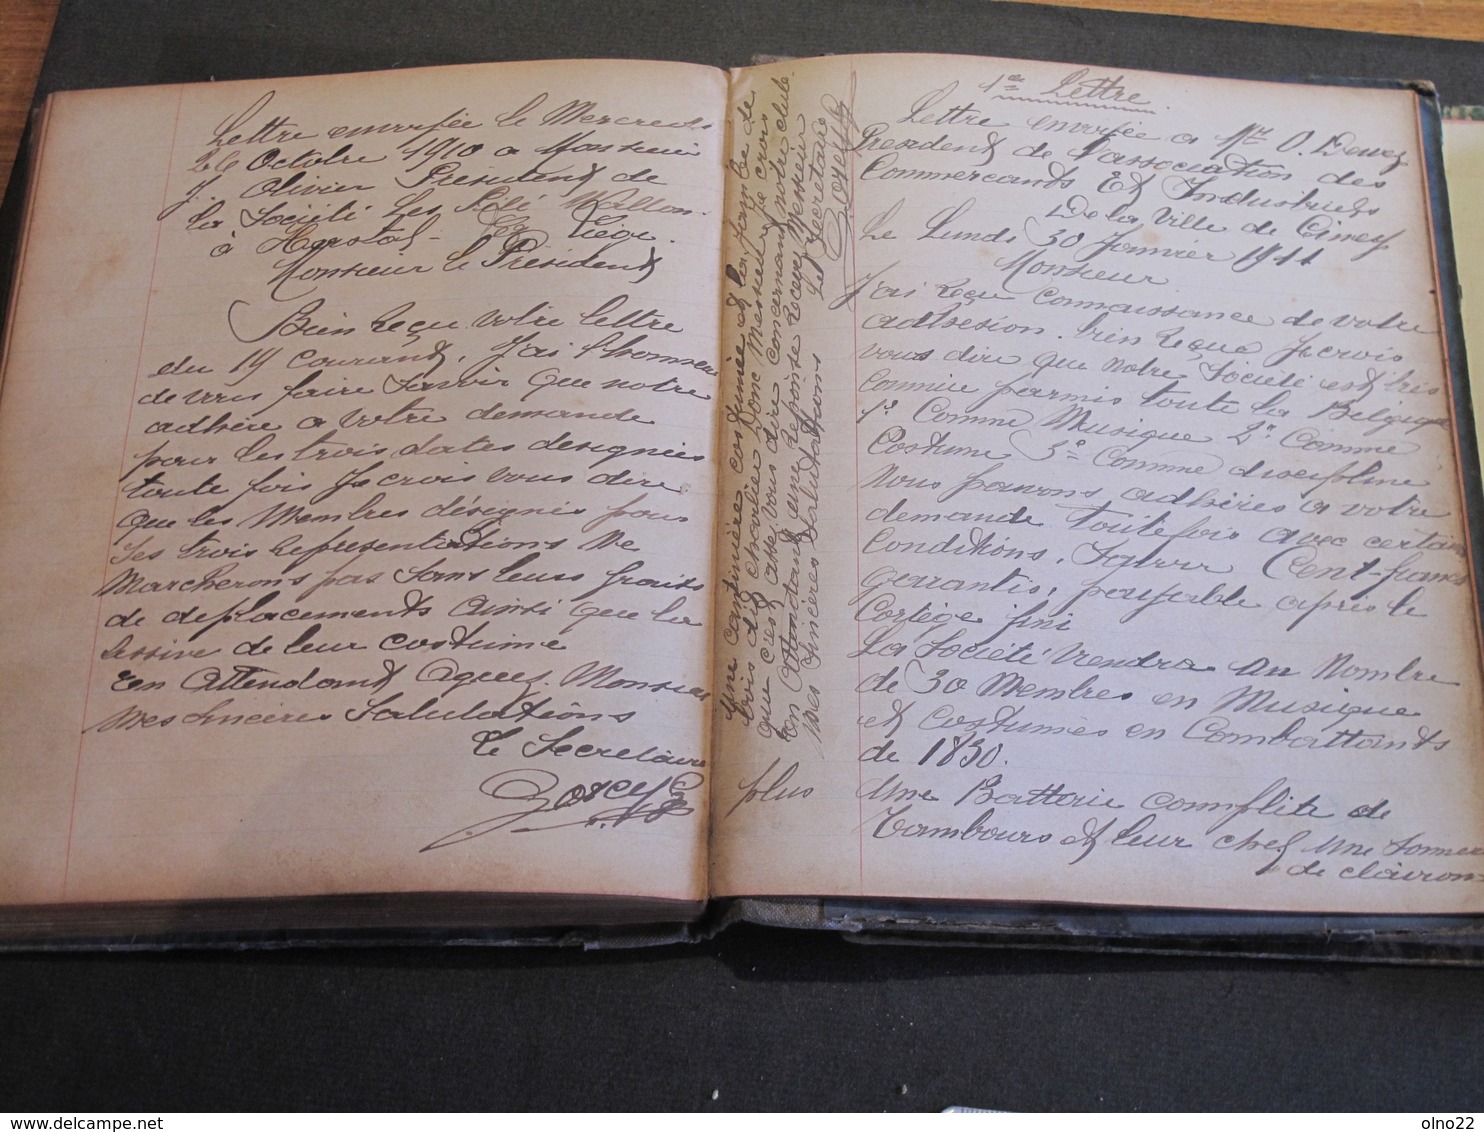 Lettre envoyée le Mercredi
26 Octobre 1910 a Monsieur
J. Olivier Président de
la Société Les Wallon
à Herstal - Lez Liége.
Monsieur le Président
Bien reçu votre lettre
du 19 courant, J'ai l'honneur
de vous faire savoir que notre
adhére a votre demande
pour les trois dates designées
toute fois Je crois vous dire
que les Membres désignés pour
ses trois representations ne
Marcherons pas sans leurs fraits
de deplacements ainsi que la
lessive de leur costume
En Attendant Agreez Monsieur
Mes sincères Salutations
Le Secretaire
Une cantinière costumée et la jambe de
bois dit chevalier Donc Messieur Je crois
que c'est assez vous dire concernant notre club
En Attendant une reponse recevez Messieur
Mes Sincères Salutations Le Secretaire
plus
1re Lettre
Lettre envoyée a Mr O. Dewez
President de l'association des
Commercants Et Industriels
De la Ville de Ciney
Le Lundi 30 Janvier 1911
Monsieur
J'ai reçu connaissance de votre
adhésion. bien reçue Je crois
vous dire que notre Société est très
connue parmis toute la Belgique
1° Comme Musique 2° Comme
Costume 3° Comme discipline
Nous pouvons adhéres a votre
demande Toute fois avec certain
Conditions, Savoir Cent-francs
garrantis, payable apres le
Cortège fini
La Société viendra au Nombre
de 30 Membres en Musique
et costumés en Combattants
de 1830.
Une Batterie complite de
Tambours et leur chef une sonnerie
de clairons
olno22